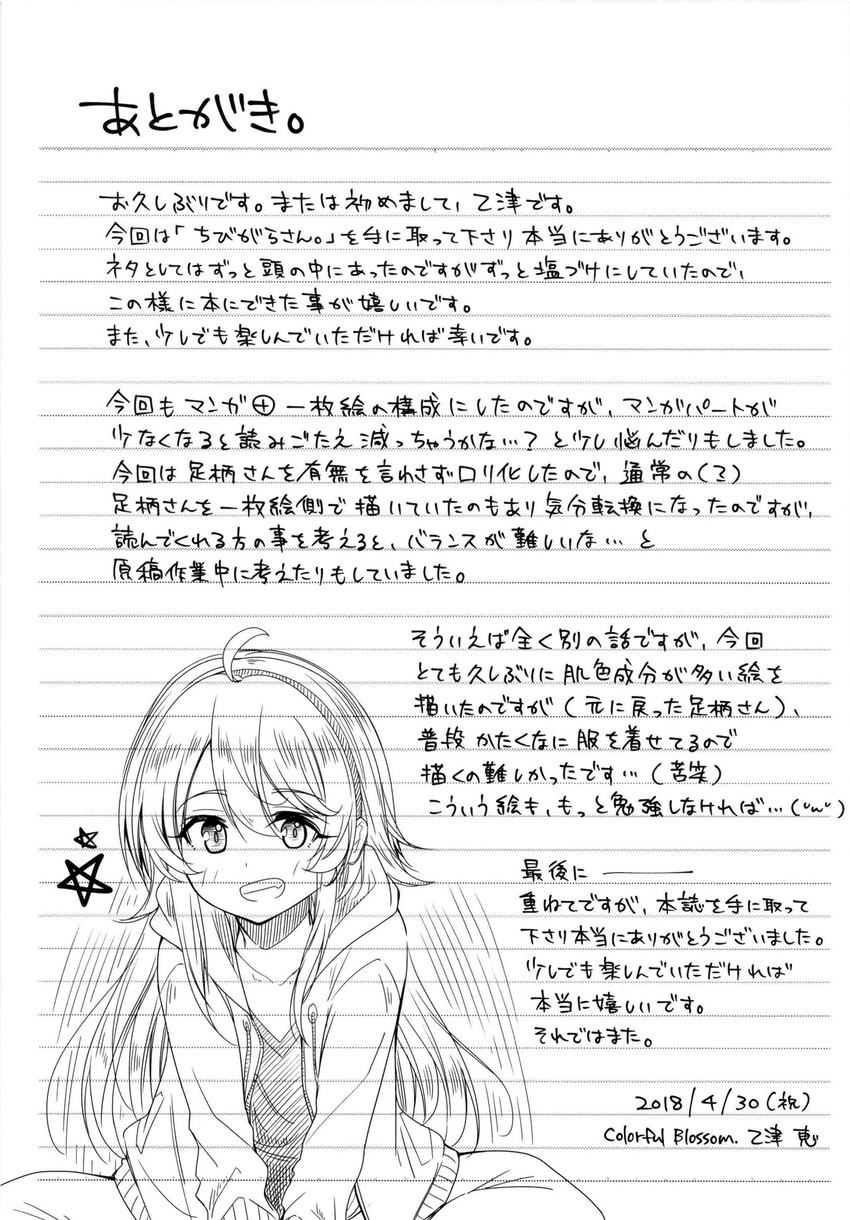 あとがき。
お久しぶりです。または初めまして、乙津です。
今回は「ちびがらさん。」を手に取って下さり本当にありがとうございます。
ネタとしてはずっと頭の中にあったのですがずっと塩づけにしていたので、
この様に本にできた事が嬉しいです。
また、少しでも楽しんでいただければ幸いです。
今回もマンガ⊕一枚絵の構成にしたのですが、マンガパートが
少なくなると読みごたえ減っちゃうかな…？と少し悩んだりもしました。
今回は足柄さんを有無を言わさずロリ化したので、通常の(？)
足柄さんを一枚絵側で描いていたのもあり気分転換になったのですが、
読んでくれる方の事を考えると、バランスが難しいな…と
原稿作業中に考えたりもしていました。
そういえば全く別の話ですが、今回
とても久しぶりに肌色成分が多い絵を
描いたのですが(元に戻った足柄さん)、
普段かたくなに服を着せてるので
描くの難しかったです…(苦笑)
こういう絵も、もっと勉強しなければ…(˘ω˘)
最後に ―――
重ねてですが、本誌を手に取って
下さり本当にありがとうございました。
少しでも楽しんでいただければ
本当に嬉しいです。
それではまた。
2018/4/30(祝)
Colorful Blossom. 乙津 恵